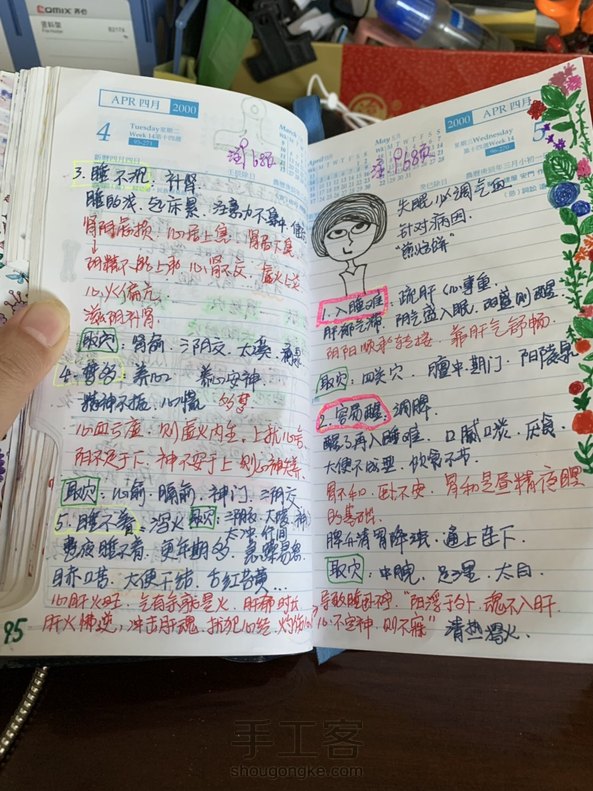 Comix 齐心
APR 四月 2000
4 Tuesday 星期二
Week 14 第十四週
95-271
3. 睡不沉，补肾
睡的浅，起床累，注意力不集中
肾阴虚损 心居上焦，肾居下焦
阴精不能上承 心肾不交，虚火上炎
心火偏亢
滋阴补肾
取穴：肾俞、三阴交、太溪、涌泉
4. 梦多：养心 养心安神
精神不振、心慌 多梦
心血亏虚，则虚火内生，上扰心房
阴不足于下，神不安于上，则心神烦
取穴：心俞、膈俞、神门、三阴交
5. 睡不着，泻火 取穴：三阴交、大陵、神门
太冲、行间
整夜睡不着，更年期多，急躁易怒
目赤口苦，大便干结，舌红苔黄…
心肝火旺，气有余就是火，肝郁
肝火拂逆，冲击肝魂，扰犯心经
95
2000 APR 四月
星期三 Wednesday
5
失眠 必调气血
针对病因
1. 入睡难，疏肝（心事重
肝郁气滞，阴气盛入眠，阳盛则醒
阴阳顺承转接，靠肝气舒畅
取穴：四关穴，膻中、期门、阳陵泉
2. 容易醒，调脾
醒了再入睡难，口腻口淡，厌食
大便不成型，饮食不节
胃不和，卧不安，胃和是昼精夜瞑
的基础
脾升清胃降浊，通上连下
取穴：中脘，足三里，太白
导致睡的碎，“阳浮于外，魂不入肝
心不定神，则不寐” 清热泻火。
手工客
shougongke.com